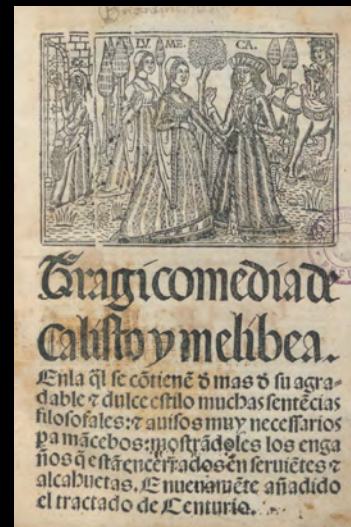 LU. ME. CA.
Tragicomedia de
Calisto y melibea.
Enla q̃l se cõtienẽ d̃ mas d̃ su agra-
dable ⁊ dulce estilo muchas sentẽcias
filosofales: ⁊ auisos muy necessarios
pa mãcebos: mostrãdoles los enga
ños q̃ estã encerrados en seruiẽtes ⁊
alcahuetas. E nueuamẽte añadido
el tractado de Centurio.